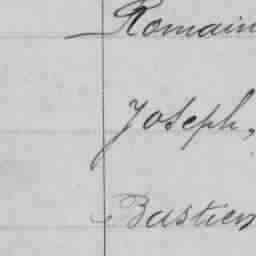 Romain
Joseph,
Bastien